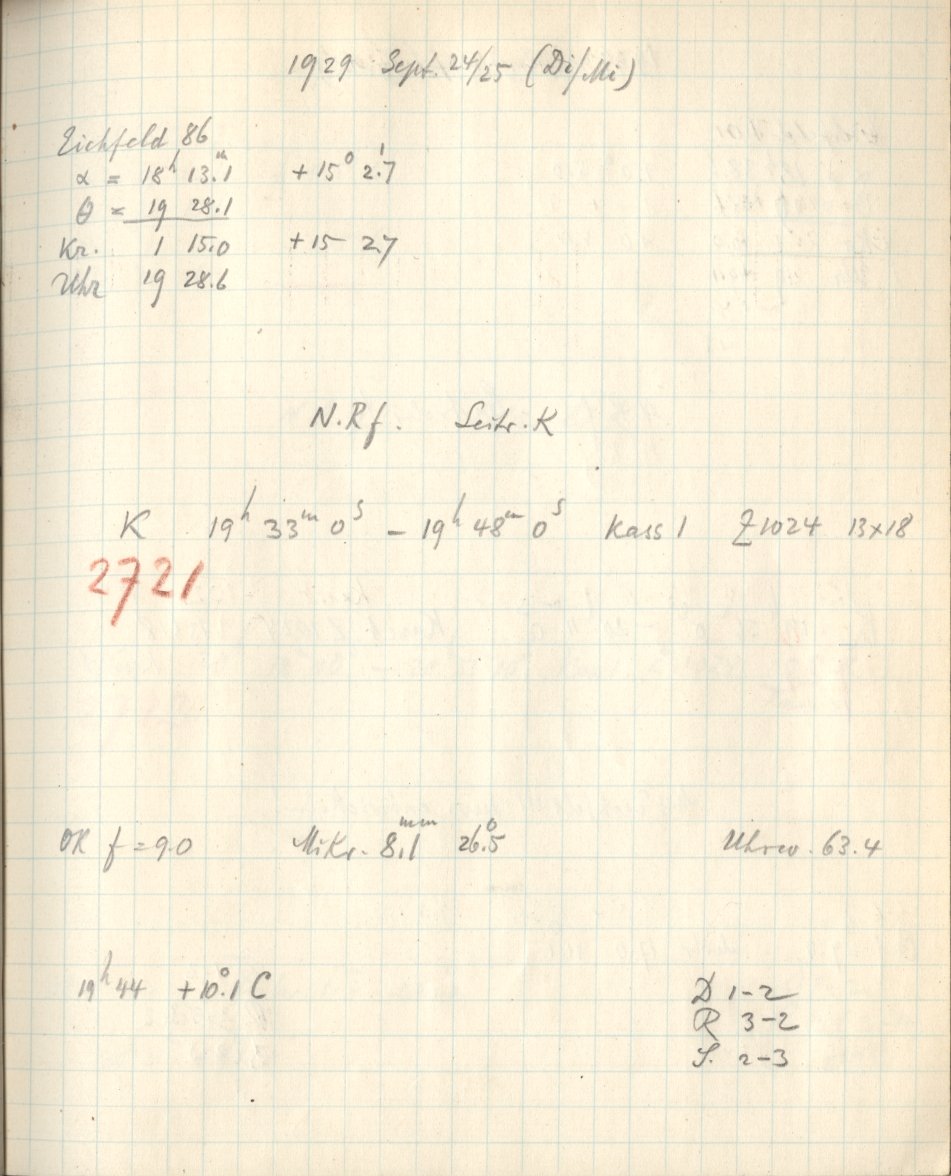 1929 Sept. 24/25 (Di/Mi)
Eichfeld 86
α = 18h 13.m1 +15° 2.'7
θ = 19 28.1
Kr. 1 15.0 +15 2.7
Uhr 19 28.6
N.Rf. Leitr. K
K 19h 33m 0s – 19h 48m 0s Kass 1 Z1024 13x18
2721
OK f = 9.0 MiKr. 8.mm1 26.°5 Uhrw. 63.4
19h 44 +10.°1 C
D 1-2
R 3-2
S. 2-3